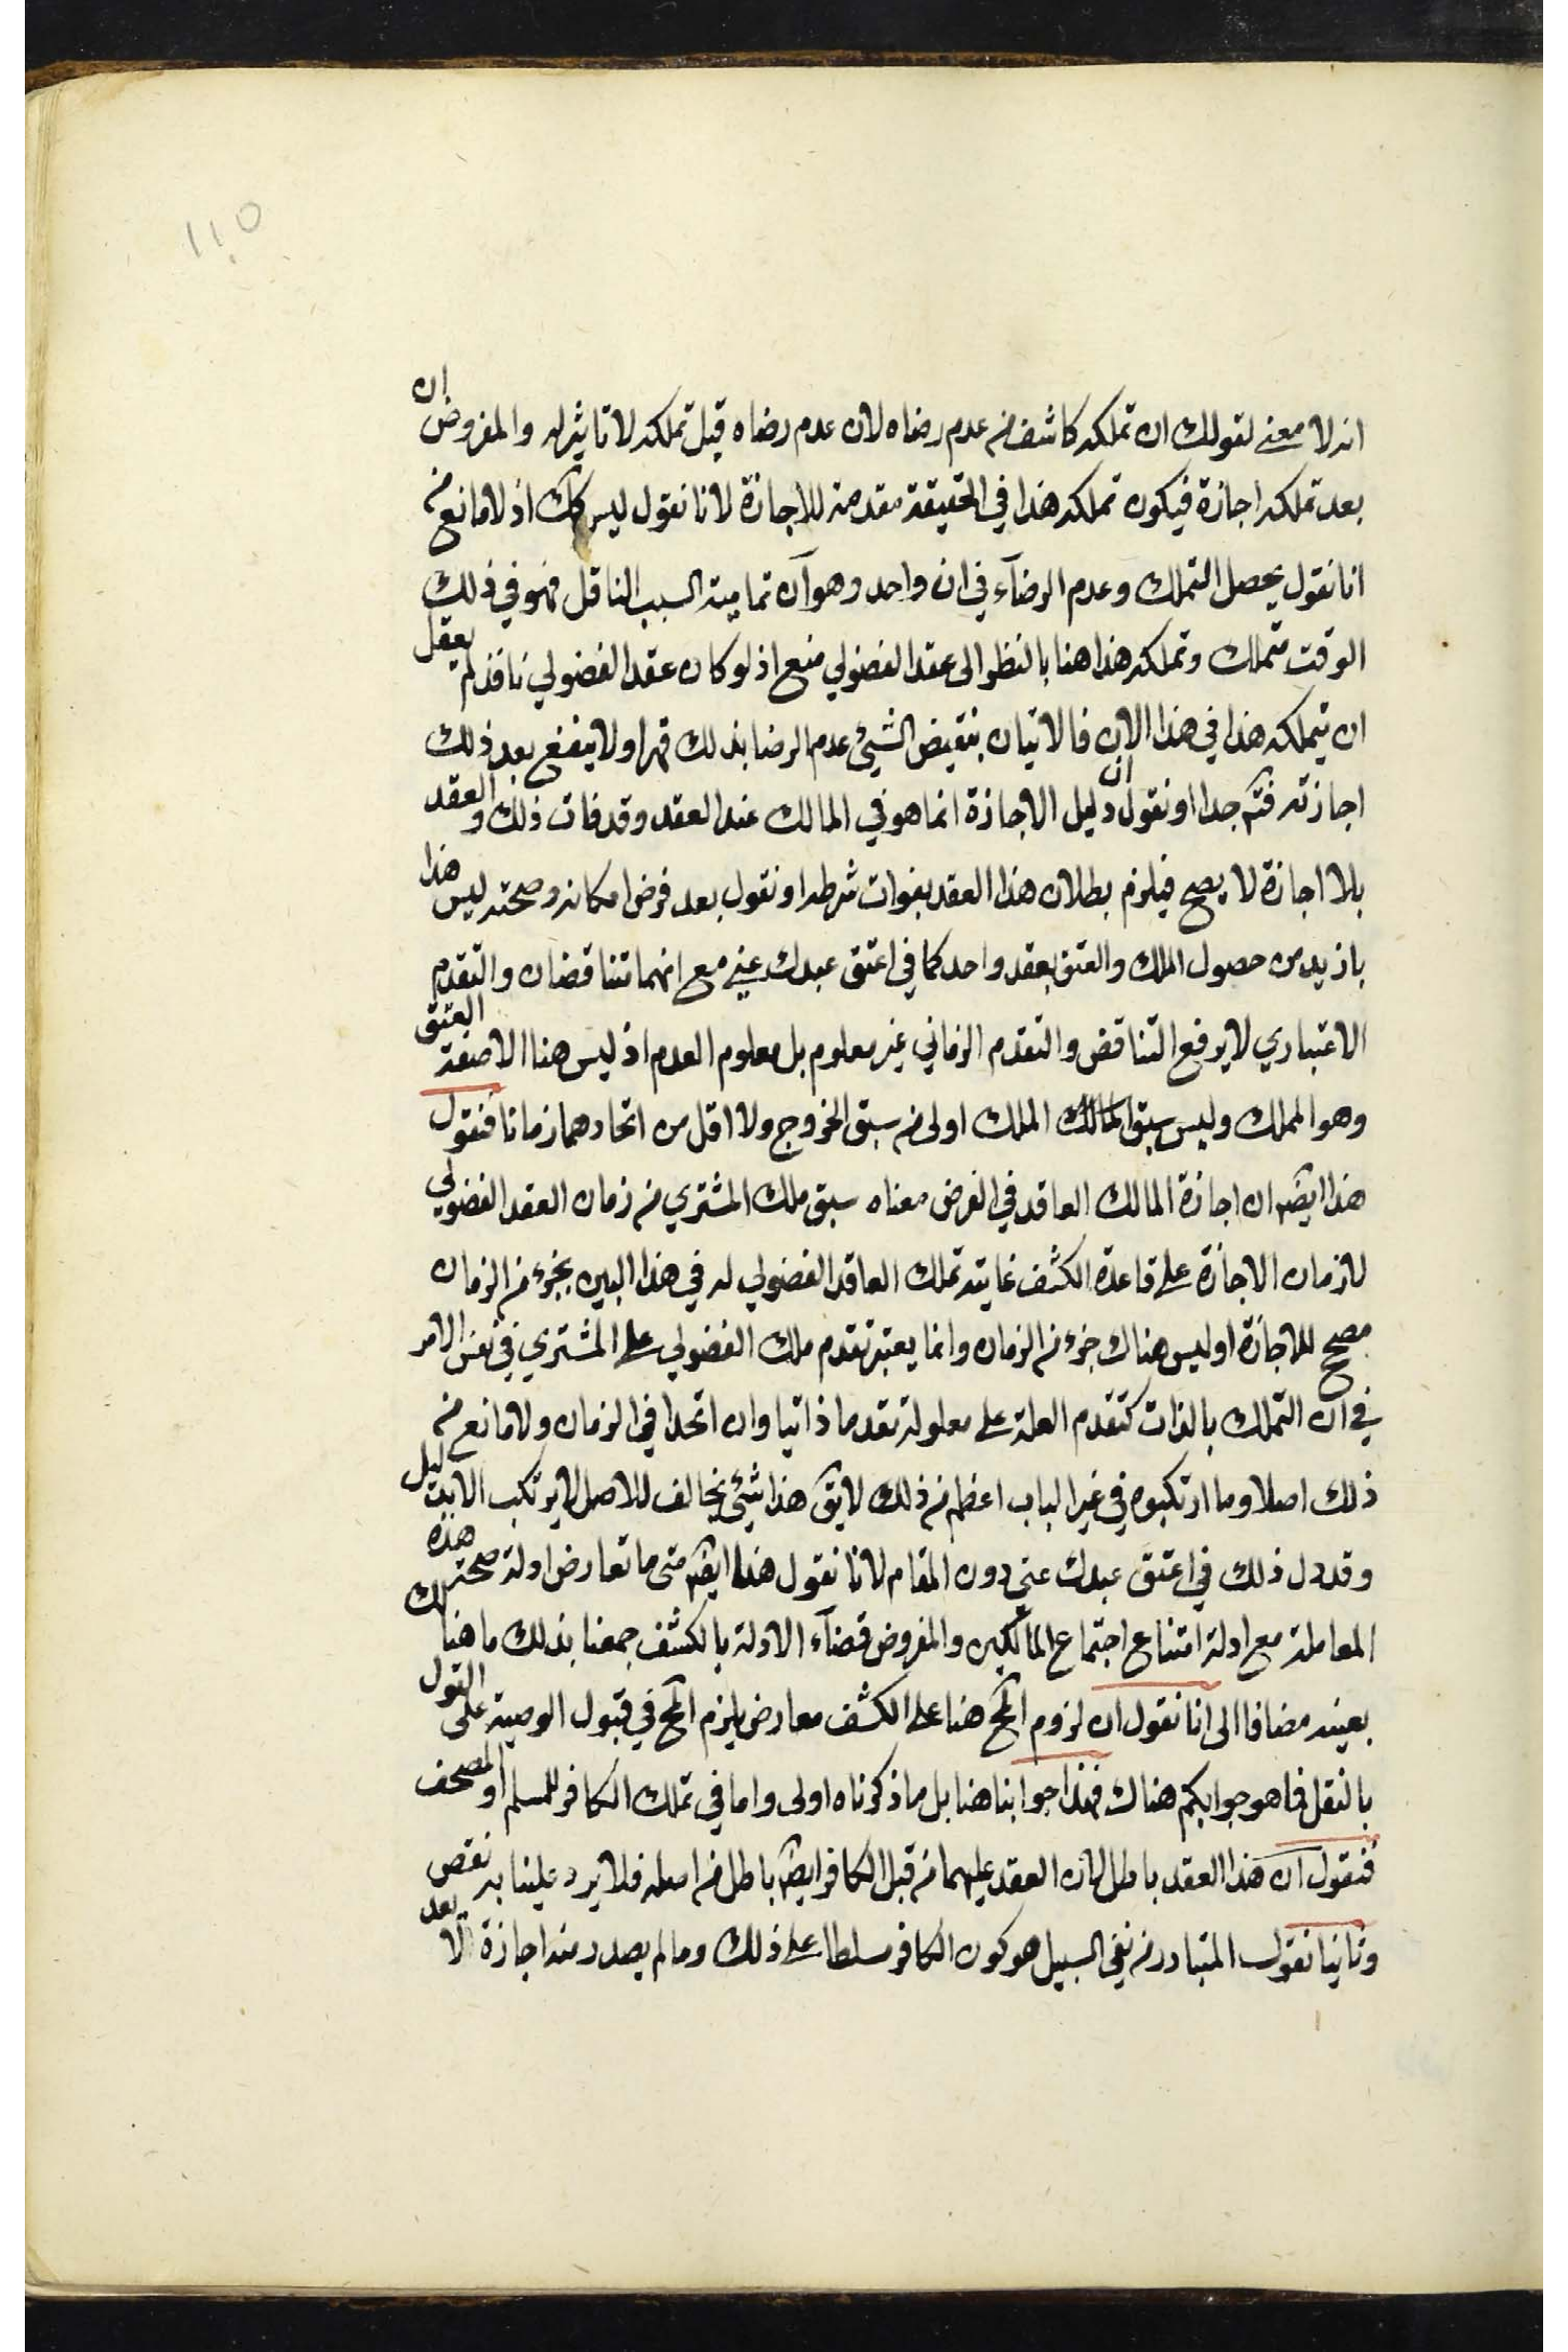 ١١٥
انه لا معنى لقولك ان تملكه كاشف من عدم رضاه لان عدم رضاه قبل تملكه لا تاثير له والمفروض ان
بعد تملكه اجازة فيكون تملكه هذا في الحقيقة مقدمة للاجازة لانا نقول ليس كك اذ لا مانع من
انا نقول يحصل التملك وعدم الرضآء في ان واحد وهو آن تمامية السبب الناقل فهو في ذلك
الوقت متملك وتملكه هذا هنا بالنظر الى عقد الفضولي منع اذ لو كان عقد الفضولي نافذ لم يعقل
ان يتملكه هذا في هذا الان فالاتيان بنقيض الشيئ عدم الرضا بذلك قهرا ولا ينفع بعد ذلك
اجازته فتم جدا او نقول ان دليل الاجازة انما هو في المالك عند العقد وقد فات ذلك والعقد
بلا اجازة لا يصح فيلزم بطلان هذا العقد بفوات شرطه او نقول بعد فرض امكانه وصحته ليس هذا
بازيد من حصول الملك والعتق بعقد واحد كما في اعتق عبدك عني مع انهما متناقضان والتقدم
الاعتباري لا يرفع التناقض والتقدم الزماني غير معلوم بل معلوم العدم اذ ليس هنا الا صفة العتق
وهو المملك وليس سبق المالك الملك اولى من سبق الخروج ولا اقل من اتحادهما زمانا فنقول
هذا ايضا ان اجازة المالك العاقد في الفرض معناه سبق ملك المشتري من زمان العقد الفضولي
لا زمان الاجازة على قاعدة الكشف غايته تملك العاقد الفضولي له في هذا البين بجزء من الزمان
مصحح للاجازة او ليس هناك جزء من الزمان وانما يعتبر تقدم ملك الفضولي على المشتري في نفس الامر
في ان التملك بالذات كتقدم العلة على معلوله تقدما ذاتيا وان اتحدا في الزمان ولا مانع من
ذلك اصلا وما ارتكبوه في غير الباب اعظم من ذلك لا يق هذا شيئ يخالف للاصل لا يرتكب الا بدليل
وقد دل ذلك في اعتق عبدك عني دون المقام لانا نقول هذا ايضا متى ما تعارض ادلة صحة هذه
المعاملة مع ادلة امتناع اجتماع المالكين والمفروض قضآء الادلة بالكشف جمعنا بذلك ما هنالك
بعينه مضافا الى انا نقول ان لزوم المح هنا على الكشف معارض بلزم المح في قبول الوصية على القول
بالنقل فما هو جوابكم هناك فهذا جوابنا هنا بل ما ذكرناه اولى واما في تملك الكافر للمسلم او المصحف
فنقول ان هذا العقد باطل لان العقد عليهما من قبل الكافر ايضا باطل من اصله فلا يرد علينا به نقص
وثانيا نقول المتبادر من نفي السبيل هو كون الكافر مسلطا على ذلك وما لم يصدر منه اجازة الا بعد